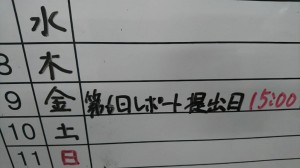 水
8 木
9 金 第6回レポート提出日 15:00
10 土
11 日